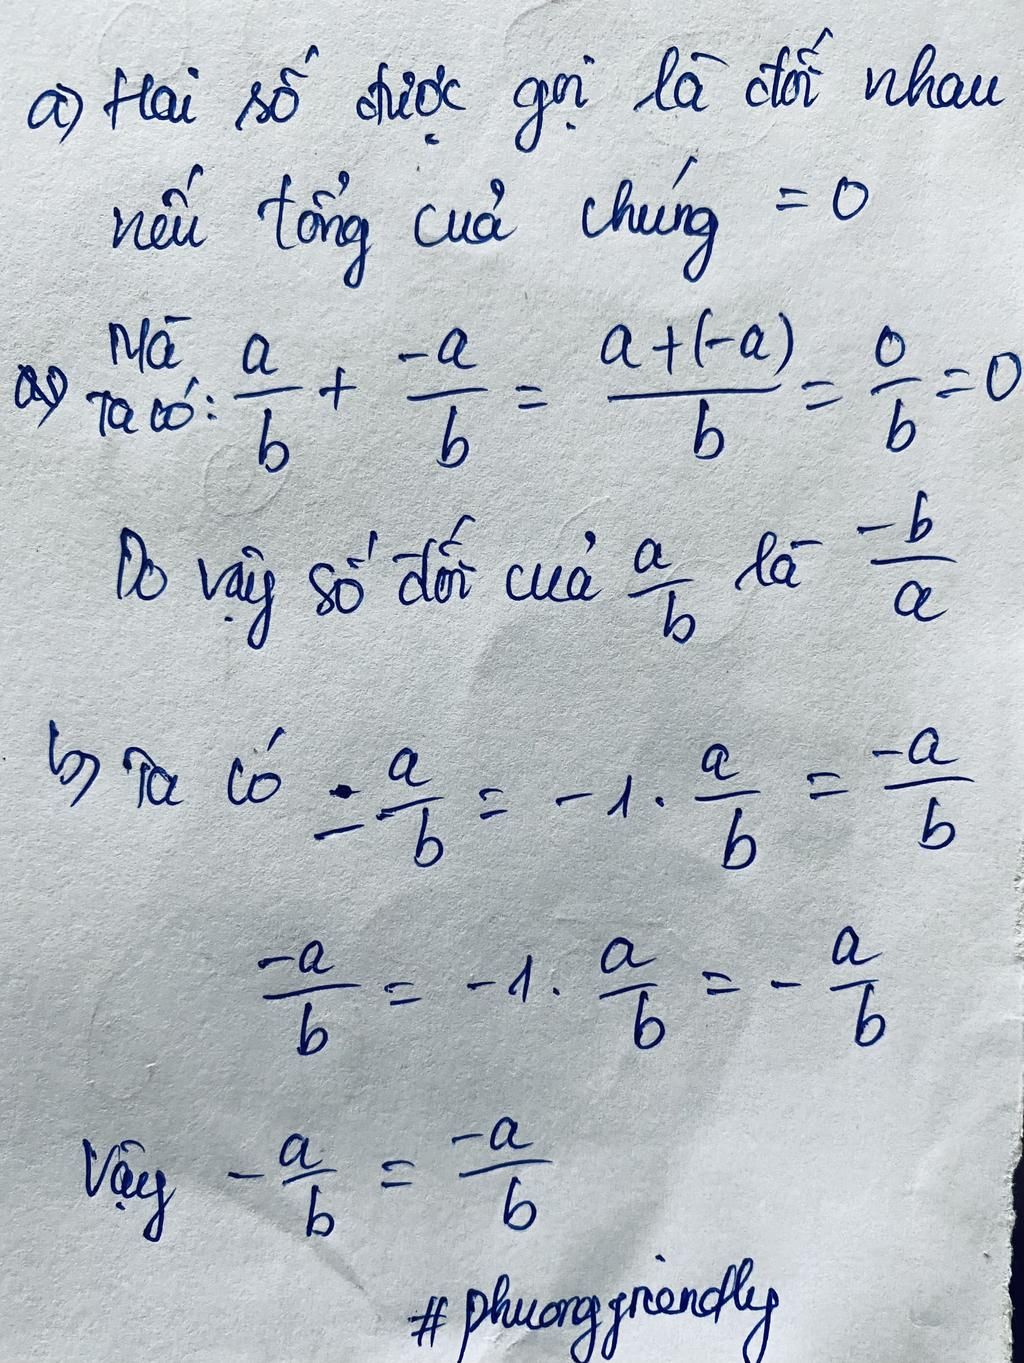 a) Hai số được gọi là đối nhau
nếu tổng của chúng = 0
Mà
a) Ta có: a/b + -a/b = a+(-a)/b = 0/b = 0
Do vậy số đối của a/b là -b/a
b) Ta có - a/b = -1 . a/b = -a/b
-a/b = -1 . a/b = - a/b
Vậy - a/b = -a/b
# phuonggriendly